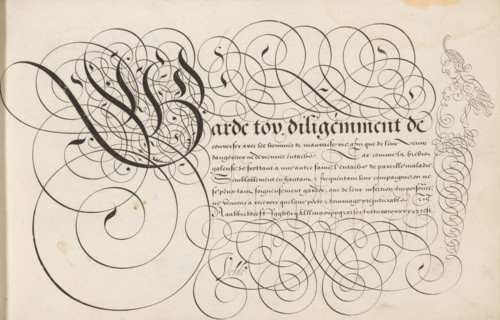 Garde toy diligemment de
converser avec les hommes de mauvaise vie, afin que de leur venin
dangereux ne deviennes entaché. Car comme la brebis
galeuse se frottant a une autre saine, l'entache de pareille maladie
Semblablement en hantant & frequentant leur compagnie, on ne
se peut tant soigneusement garder, que de leur infection, &
ne venions a recevoir quelque perte & dommage prejudiciable.